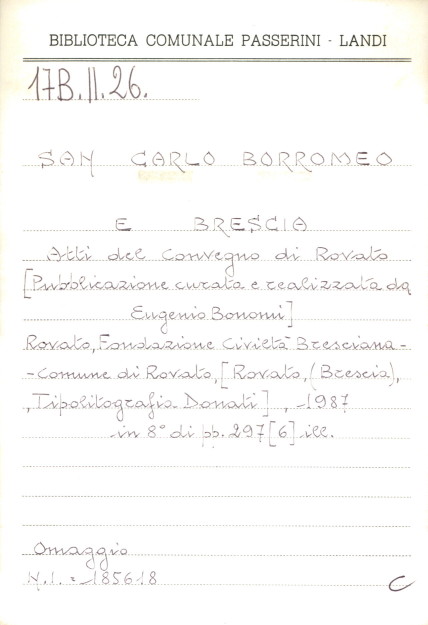 BIBLIOTECA COMUNALE PASSERINI - LANDI
17B.II.26.
SAN CARLO BORROMEO
E BRESCIA
Atti del Convegno di Rovato
[Pubblicazione curata e realizzata da
Eugenio Bonomi]
Rovato, Fondazione Civiltà Bresciana -
- Comune di Rovato, [Rovato, (Brescia),
, Tipolitografia Donati] , 1987
in 8° di pp. 297 [6] ill.
Omaggio
N.I. = 185618
C